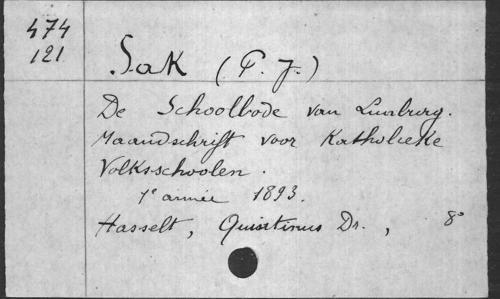 474
121
Sak (P. J.)
De Schoolbode van Limburg.
Maandschrift voor Katholieke
Volksschoolen.
1e année 1893.
Hasselt, Quintinus Dr., 8°